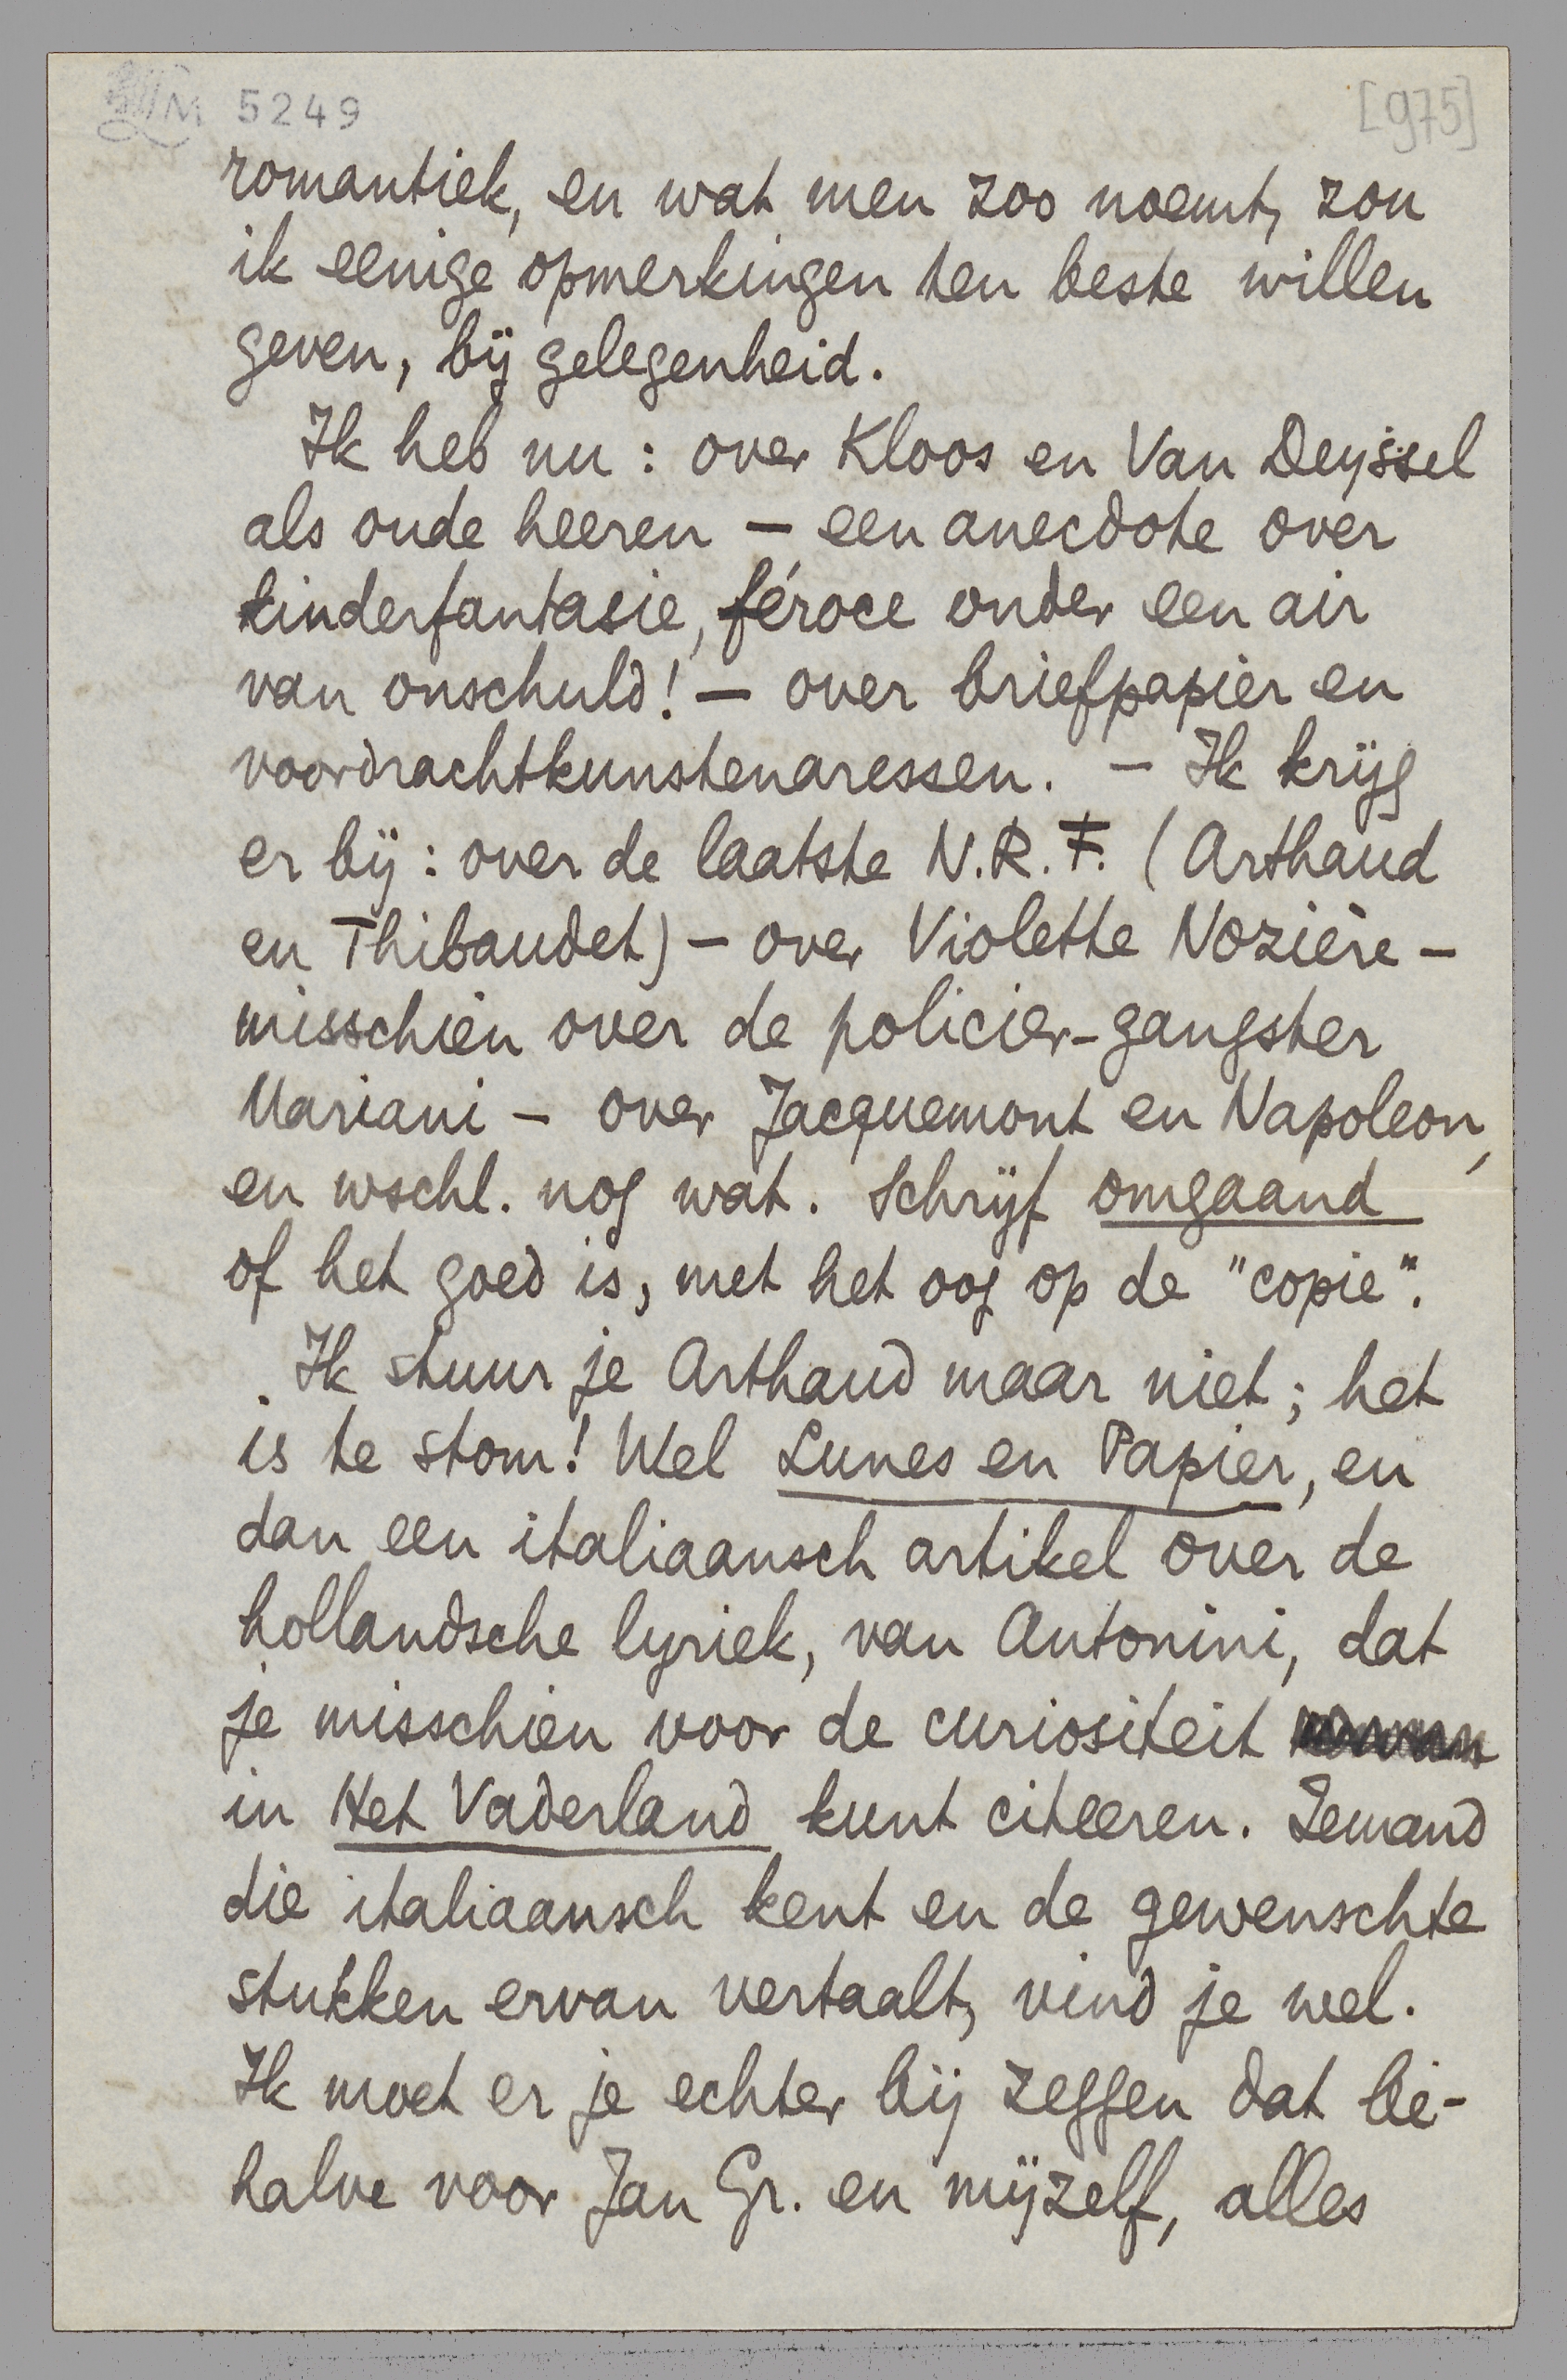 LM 5249
[975]
romantiek, en wat men zoo noemt, zou
ik eenige opmerkingen ten beste willen
geven, bij gelegenheid.
Ik heb nu: over Kloos en Van Deyssel
als oude heeren — een anecdote over
kinderfantasie, féroce onder een air
van onschuld! — over briefpapier en
voordrachtkunstenaressen. — Ik krijg
er bij: over de laatste N.R.F. (Arthaud
en Thibaudet) — over Violette Nozière —
misschien over de policier-gangster
Mariani — over Jacquemont en Napoleon,
en wschl. nog wat. Schrijf omgaand
of het goed is, met het oog op de "copie".
Ik stuur je Arthaud maar niet; het
is te stom! Wel Lunes en Papier, en
dan een italiaansch artikel over de
hollandsche lyriek, van Antonini, dat
je misschien voor de curiositeit
in Het Vaderland kunt citeeren. Iemand
die italiaansch kent en de gewenschte
stukken ervan vertaalt, vind je wel.
Ik moet er je echter bij zeggen dat be-
halve voor Jan Gr. en mijzelf, alles